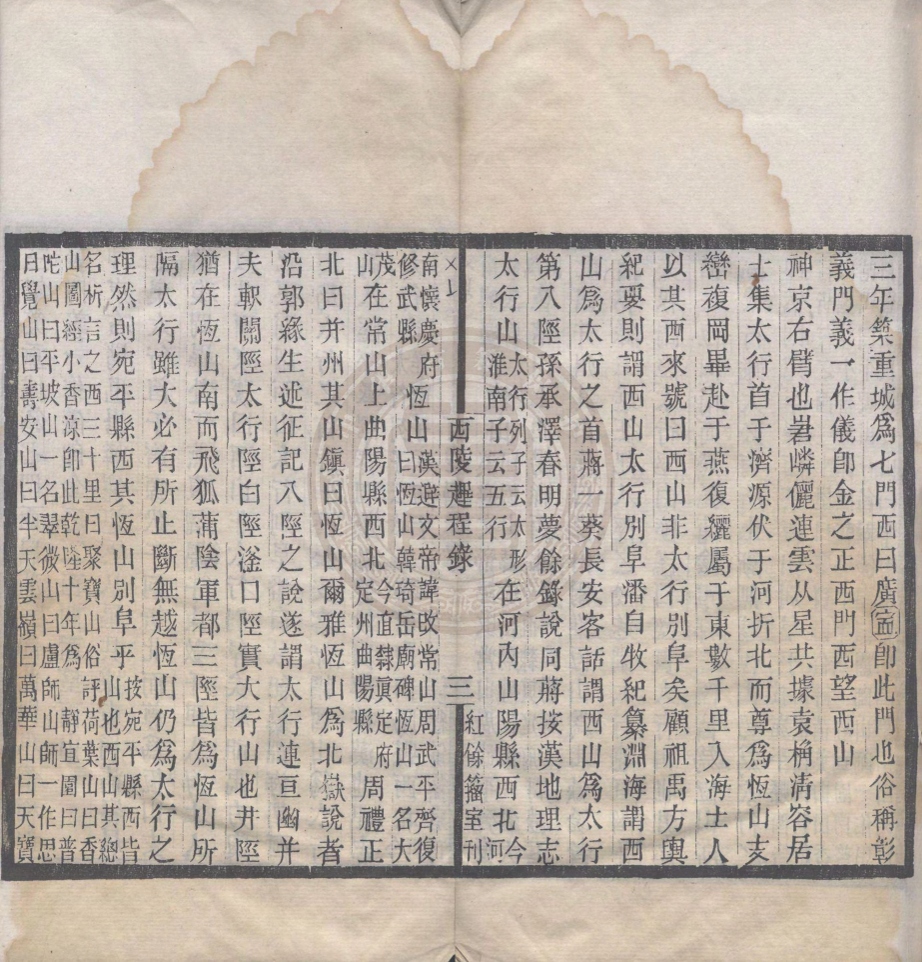 三年築重城爲七門西曰廣即此門也俗稱彰
義門義一作儀即金之正西門西望西山
神京右臂也嶙儷連雲从星共據袁桷清容居
士集太行首于濟源伏于河折北而尊爲恆山支
巒複岡畢赴于燕復纚屬于東數千里入海土人
以其西來號曰西山非太行別阜矣顧祖禹方輿
紀要則謂西山太行別阜潘自牧紀纂淵海謂西
山爲太行之首蔣一葵長安客話謂西山爲太行
第八陘孫承澤春明夢餘錄說同蔣按漢地理志
太行山太行列子云太形淮南子云五行在河內山陽縣西北今河
西陵趨程錄 三 紅餘籀室刊
南懷慶府修武縣恆山漢避文帝諱改常山周武平齊復曰恆山韓琦岳廟碑恆山一名大
茂山在常山上曲陽縣西北今直隸眞定府定州曲陽縣周禮正
北曰幷州其山鎭曰恆山爾雅恆山爲北嶽說者
沿郭緣生述征記八陘之說遂謂太行連亘幽幷
夫軹關陘太行陘白陘滏口陘實大行山也井陘
猶在恆山南而飛狐蒲陰軍都三陘皆爲恆山所
隔太行雖大必有所止斷無越恆山仍爲太行之
理然則宛平縣西其恆山別阜乎按宛平縣西皆山也西山其總
名析言之西三十里曰聚寶山俗評荷葉山曰香山圖經小香涼卽此乾隆十年爲靜宜園曰普
陀山曰平坡山一名翠微山曰盧師山師一作思曰覺山曰壽安山曰半天雲嶺曰萬華山曰天寶